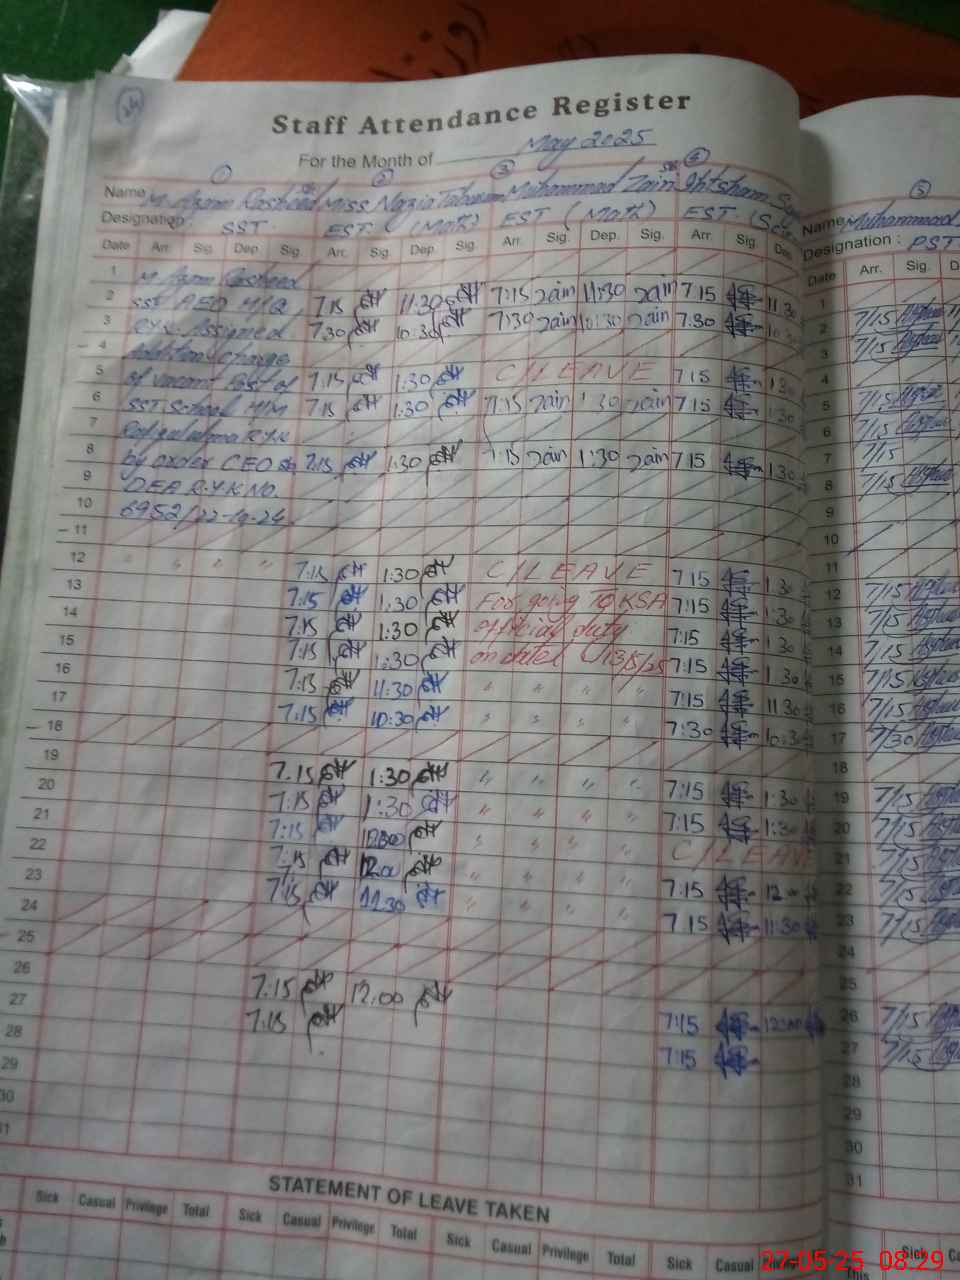 24
Staff Attendance Register
For the Month of May 2025
1 2 3 4
Name M. Azam Rasheed Miss Nazia Tabasum Muhammad Zain Ihtsham
Designation: SST EST (Math) EST (Math) EST (Sci
Date Arr. Sig. Dep. Sig. Arr. Sig. Dep. Sig. Arr. Sig. Dep. Sig. Arr. Sig. Dep.
1 M. Azam Rasheed
2 SST AEO M/Q 7:15 11:30 7:15 zain 11:30 zain 7:15 11:30
3 RYK. Assigned 7:30 10:30 7:30 zain 10:30 zain 7:30 10:30
4 Additional Charge
5 of vacant Post of 7:15 1:30 C/LEAVE 7:15 1:30
6 SST School M/M 7:15 1:30 7:15 zain 1:30 zain 7:15 1:30
7
8 by order CEO 7:15 1:30 7:15 zain 1:30 zain 7:15 1:30
9 DEA R.Y.K NO.
10 6952/22-10-24
11
12 " " " " 7:15 1:30 C/LEAVE 7:15 1:30
13 7:15 1:30 For going TO KSA 7:15 1:30
14 7:15 1:30 official duty 7:15 1:30
15 7:15 1:30 on dated 13/5/25 7:15 1:30
16 7:15 11:30 " " " " 7:15 11:30
17 7:15 10:30 " " " " 7:30 10:30
18
19 7:15 1:30 " " " " 7:15 1:30
20 7:15 1:30 " " " " 7:15 1:30
21 7:15 12:00 " " " " C/LEAVE
22 7:15 12:00 " " " " 7:15 12:00
23 7:15 11:30 " " " " 7:15 11:30
24
25
26 7:15 12:00 7:15 12:00
27 7:15 7:15
28
29
30
31
STATEMENT OF LEAVE TAKEN
Sick Casual Privilege Total Sick Casual Privilege Total Sick Casual Privilege Total Sick Casual
5
Name Muhammad
Designation : PST
Date Arr. Sig. D
1
2 7/15
3 7/15
4
5 7/15
6 7/15
7 7/15
8 7/15
9
10
11
12 7/15
13 7/15
14 7/15
15 7/15
16 7/15
17 7/30
18
19 7/15
20 7/15
21 7/15
22 7/15
23 7/15
24
25
26 7/15
27 7/15
28
29
30
31
Sick Ca
27-05-25 08:29